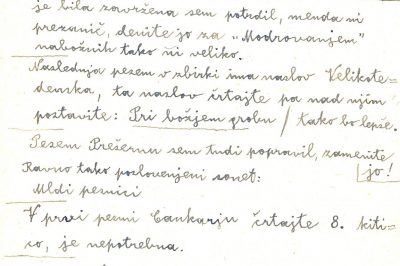 je bila zavržena sem potrdil, menda ni
prezanič, denite jo za „Modrovanjem"
nabožnih tako ni veliko.
Naslednja pesem v zbirki ima naslov Velikote-
denska, ta naslov črtajte pa nad njim
postavite: Pri božjem grobu / tako bo lepše.
Pesem Prešernu sem tudi popravil, zamenite
Ravno tako poslovenjeni sonet: jo!
Mldi pesnici
V prvi pesmi Cankarju črtajte 8. kiti-
co, je nepotrebna.